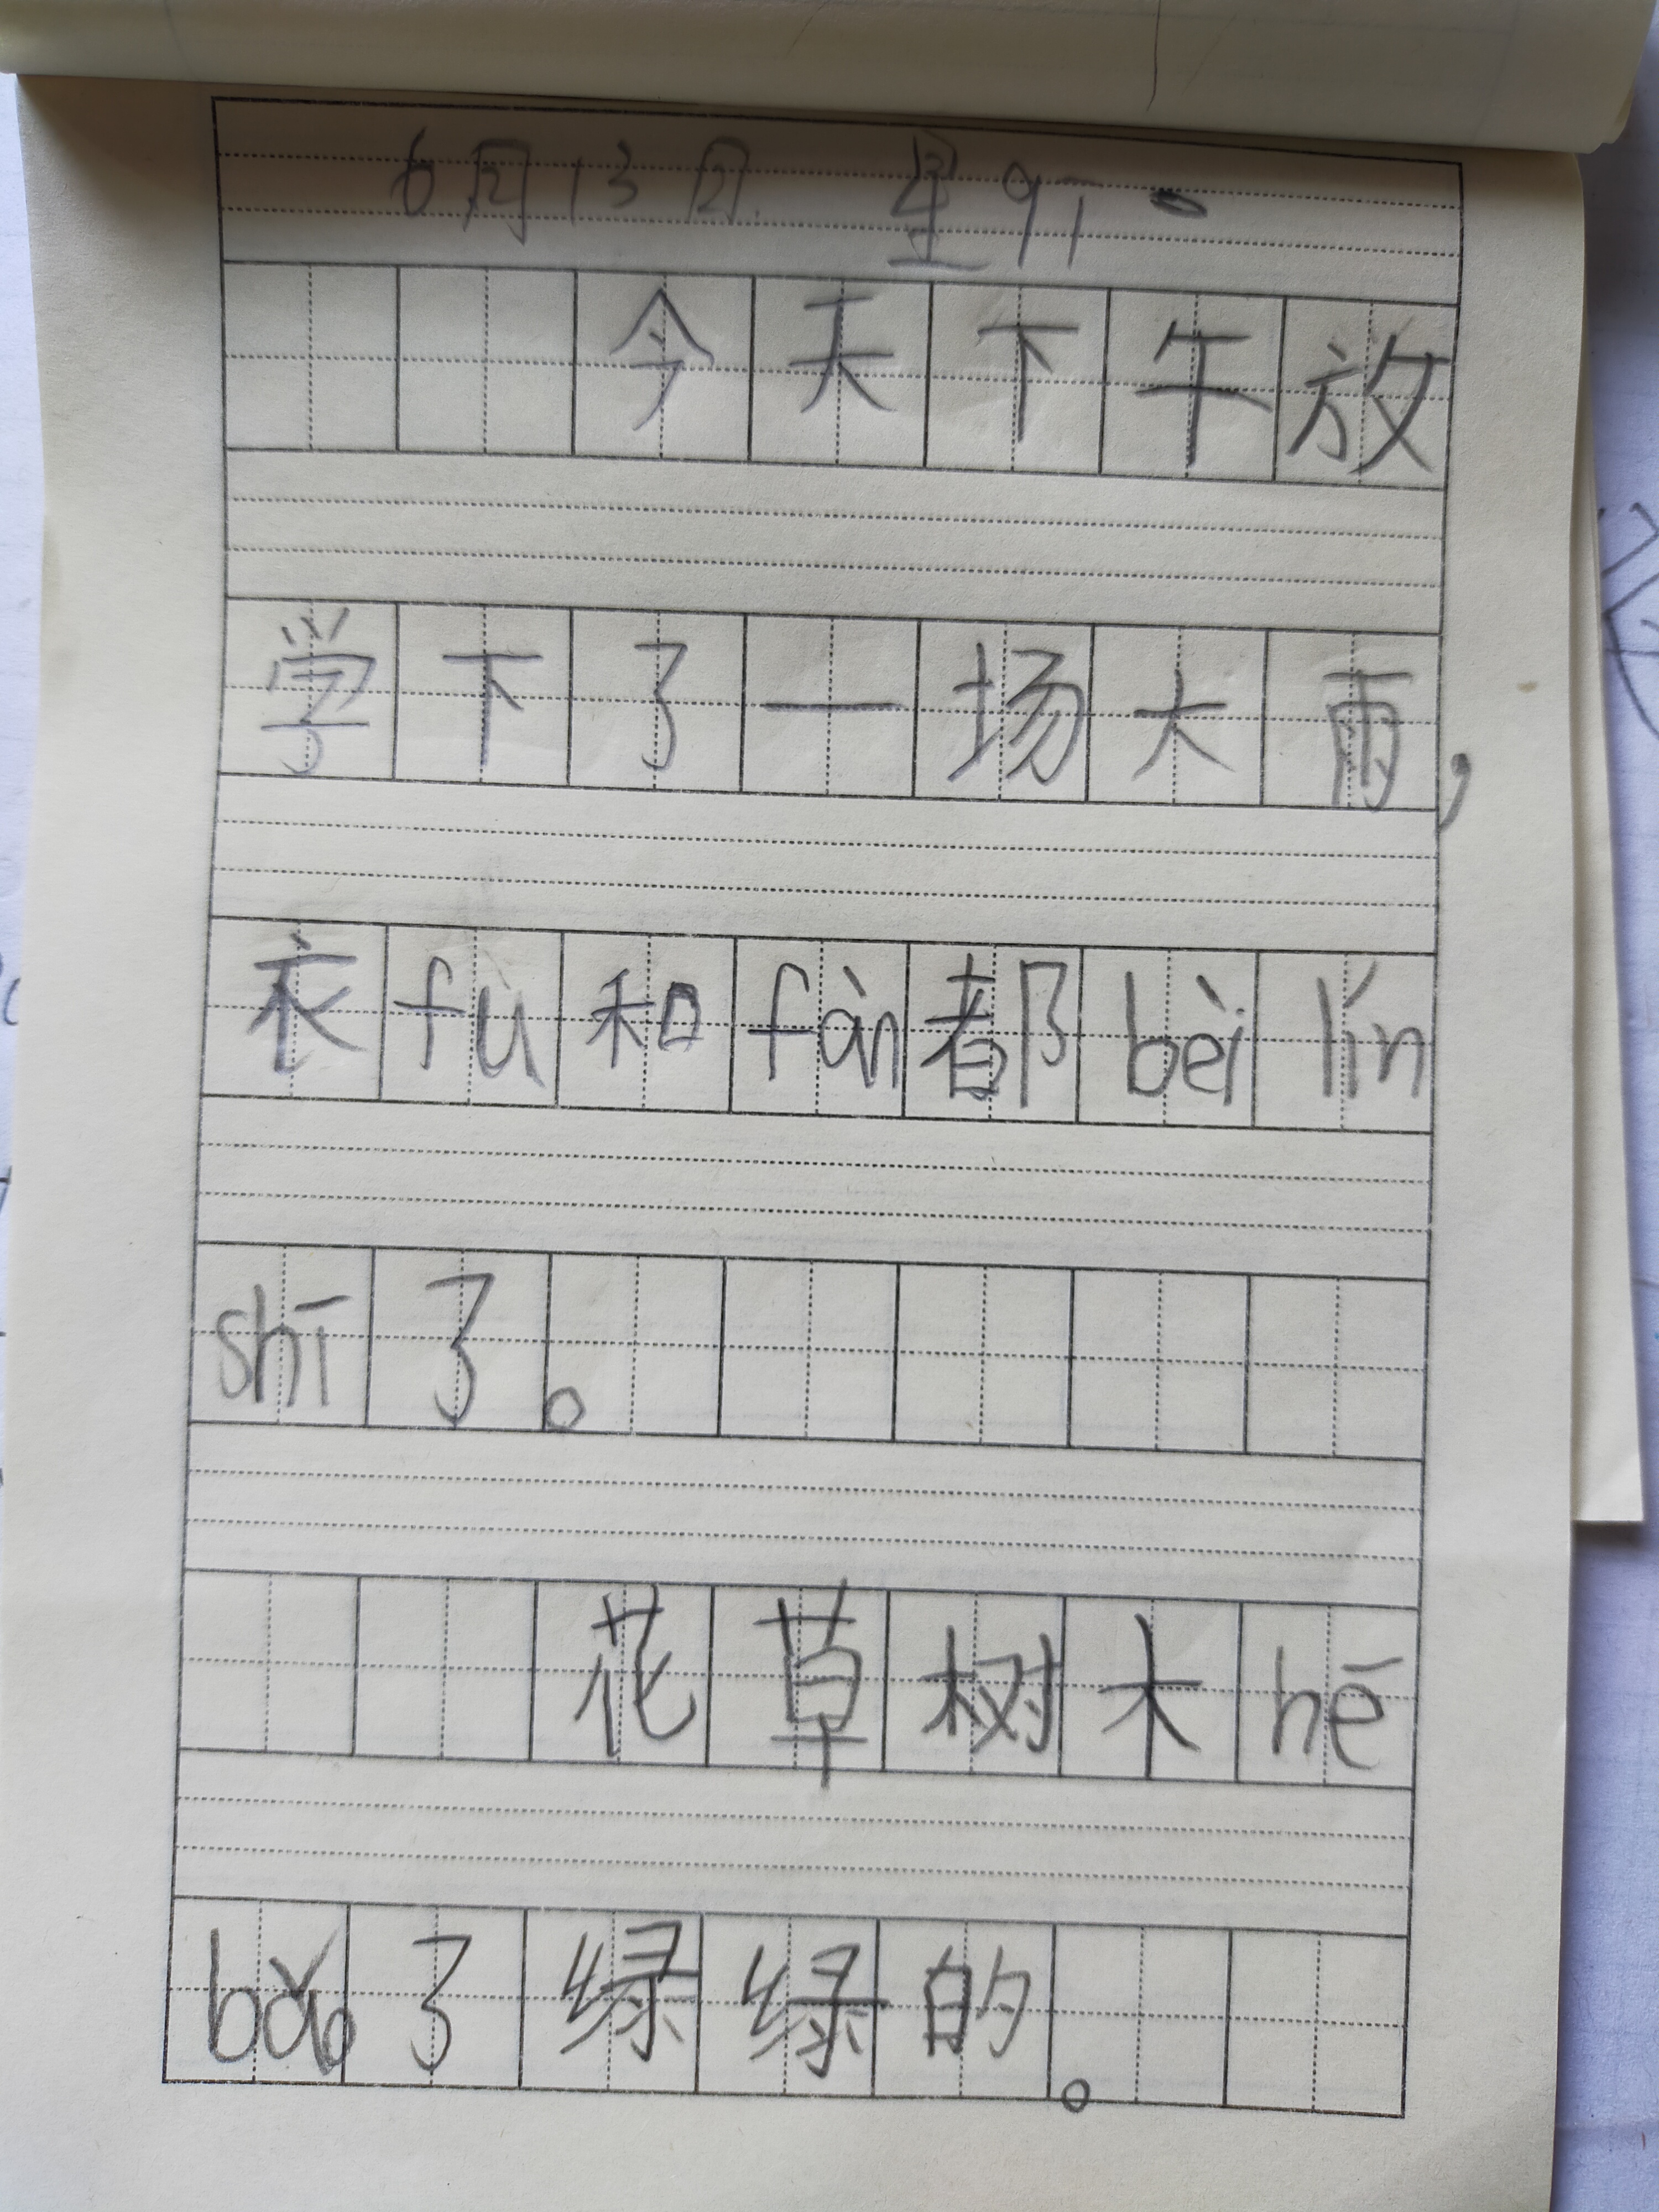 6月13日 星qī一
今天下午放
学下了一场大雨,
衣fu和fàn都bèi lín
shī了。
花草树木hē
bǎo了绿绿的。